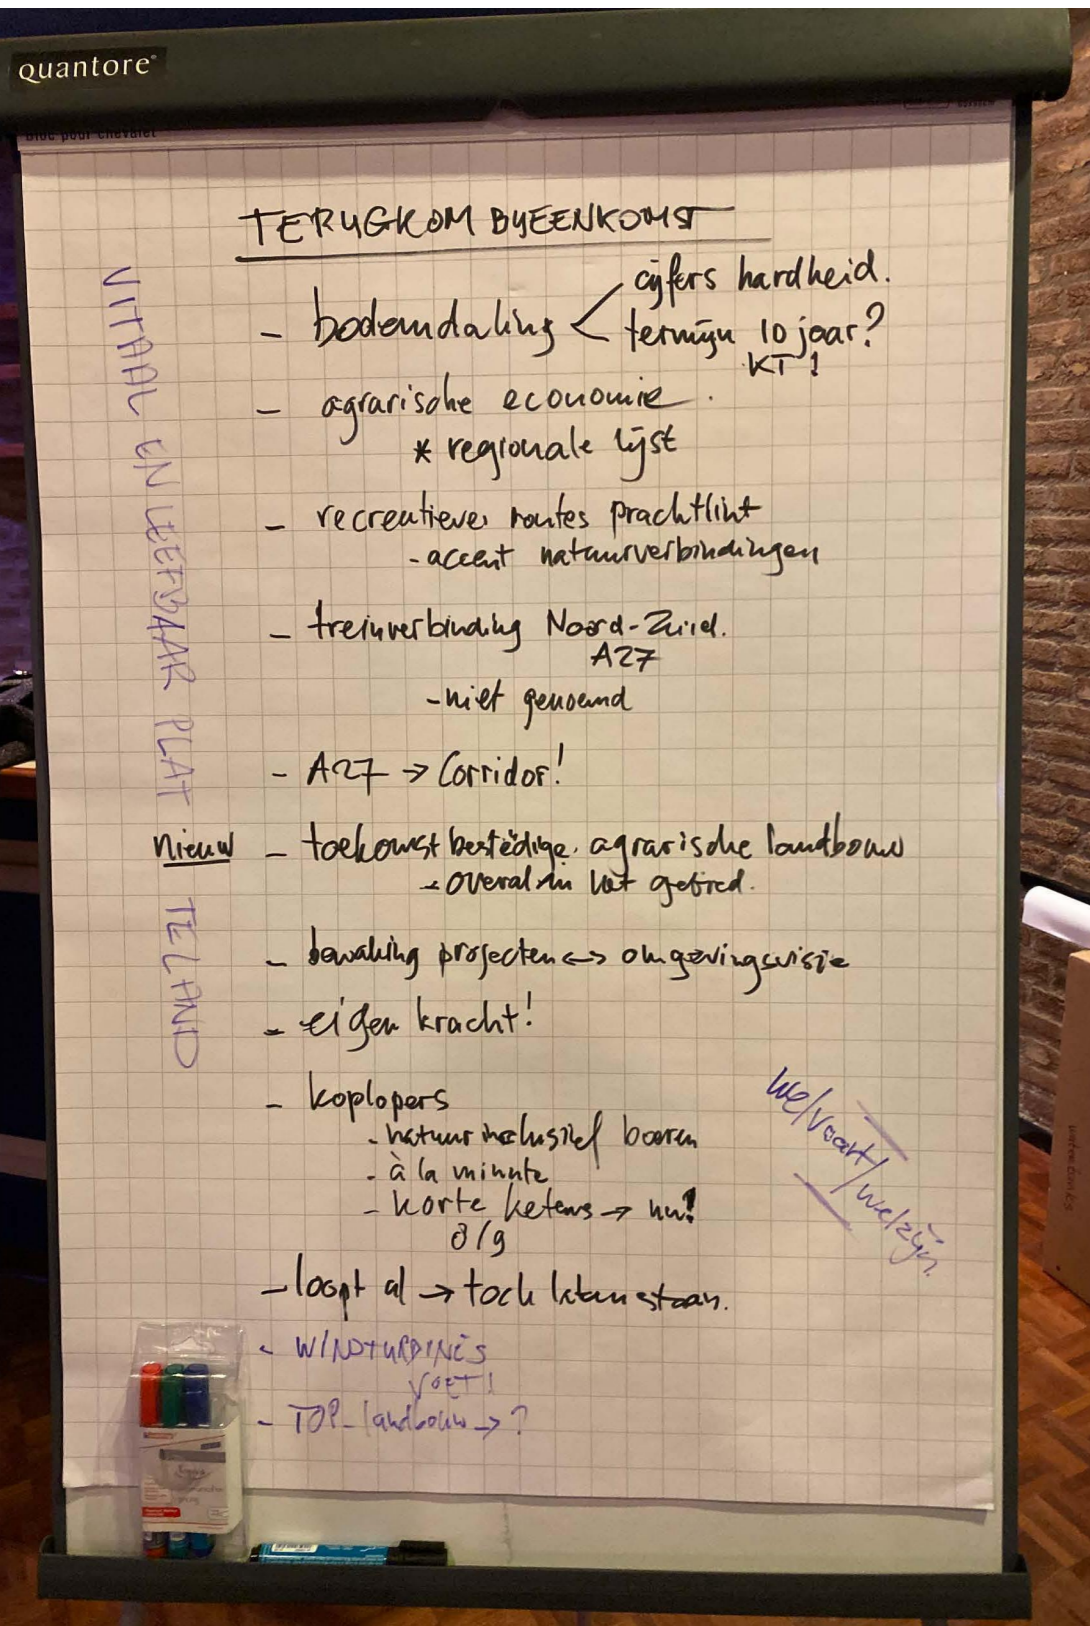 quantore
Bloc pour chevalet
TERUGKOM BYEENKOMST
VITAAL EN LEEFBAAR PLATTELAND
- bodemdaling < cijfers hardheid.
termijn 10 jaar?
KT!
- agrarische economie.
* regionale lijst
- recreatieve routes prachtlint
- accent natuurverbindingen
- treinverbinding Noord-Zuid.
A27
- niet genoemd
- A27 → Corridor!
nieuw - toekomstbestedige agrarische landbouw
- overal in het gebied.
- bewaking projecten <-> omgevingsvisie
- eigen kracht!
- koplopers
- natuurinclusief boeren
- à la minute
- korte ketens → nu!
8/9
welvaart/welzijn.
- loopt al → toch laten staan.
- WINDTURBINES
VOET!
- TOP-landbouw → ?